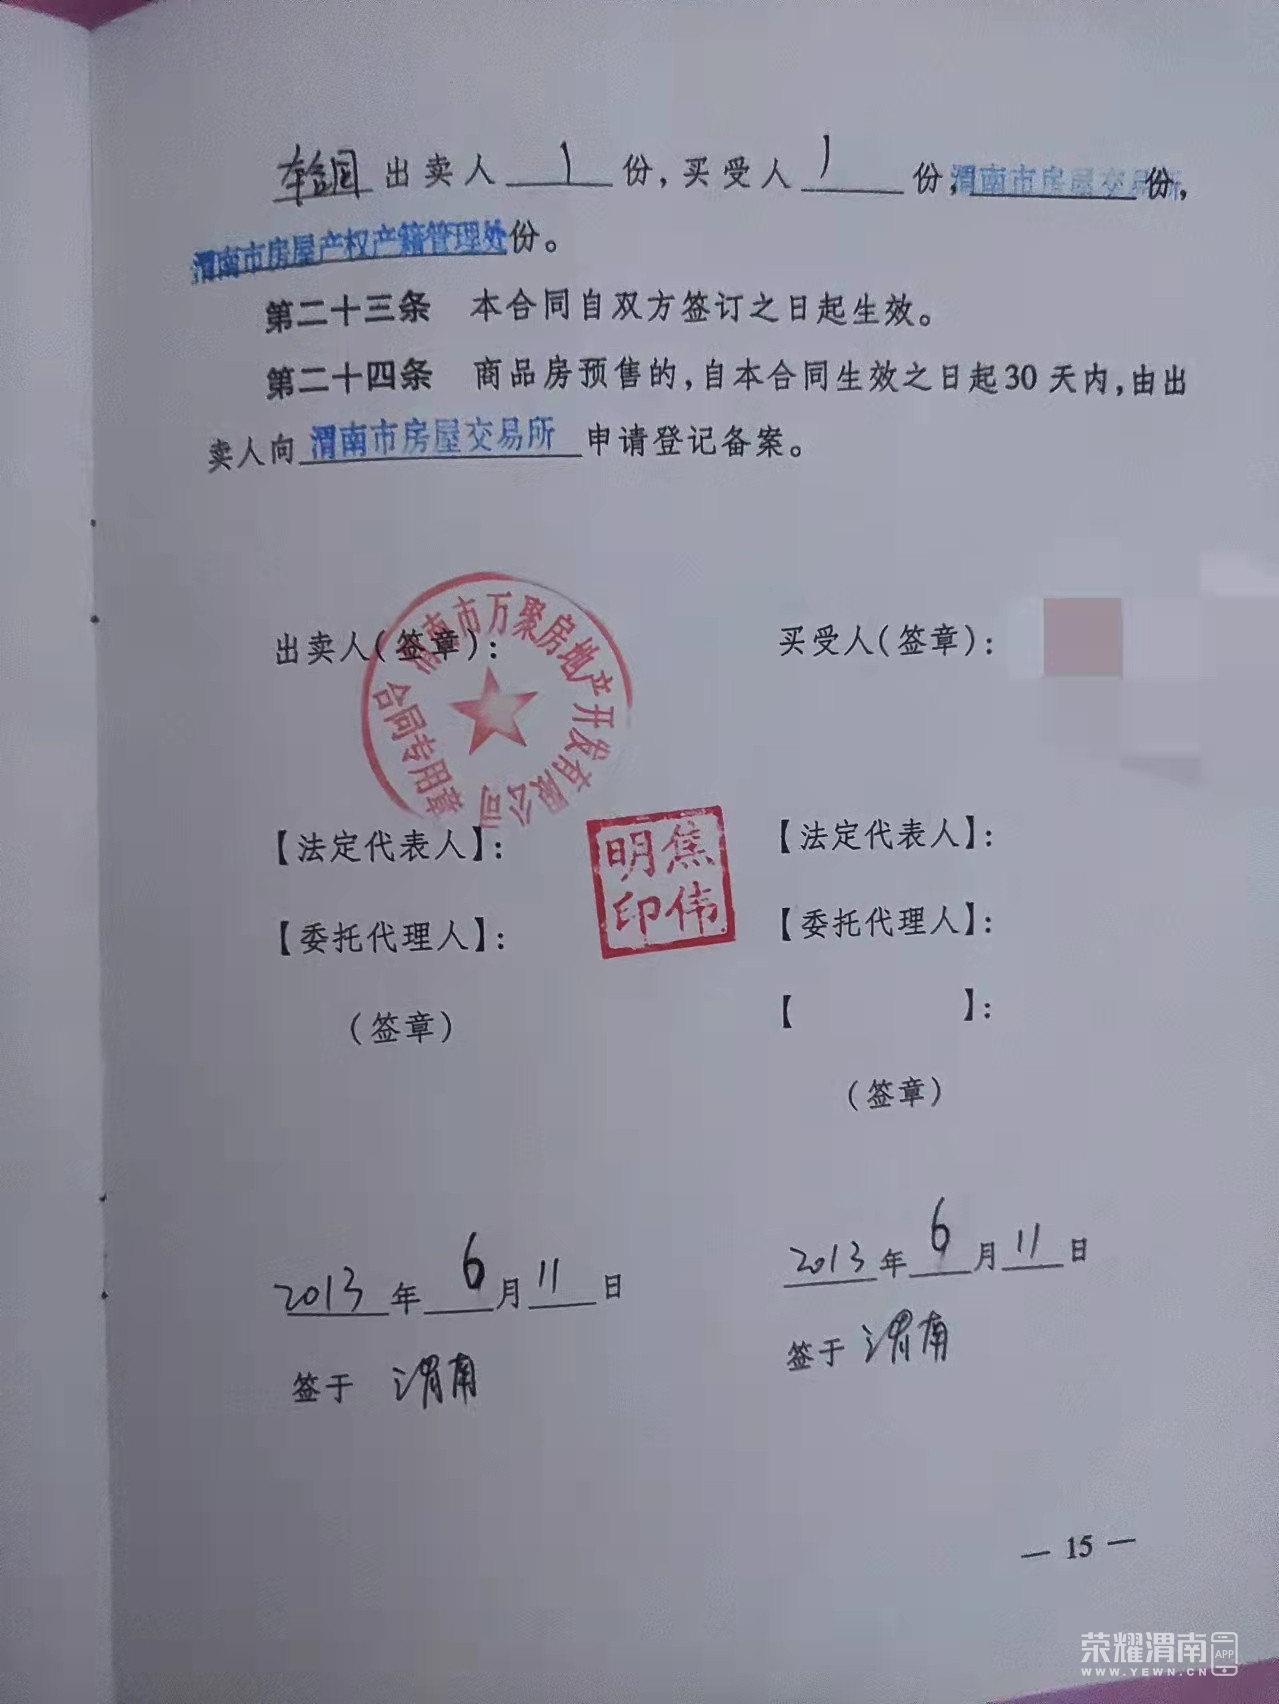 本合同 出卖人 1 份，买受人 1 份，渭南市房屋交易所份，
渭南市房屋产权产籍管理处份。
第二十三条 本合同自双方签订之日起生效。
第二十四条 商品房预售的，自本合同生效之日起30天内，由出
卖人向 渭南市房屋交易所 申请登记备案。
出卖人（签章）：
买受人（签章）：
渭南市万聚房地产开发有限公司
合同专用章
【法定代表人】：
【法定代表人】：
焦伟明印
【委托代理人】：
【委托代理人】：
（签章）
【 】：
（签章）
2013 年 6 月 11 日
2013 年 6 月 11 日
签于 渭南
签于 渭南
— 15 —
荣耀渭南 APP
WWW.YEWN.CN